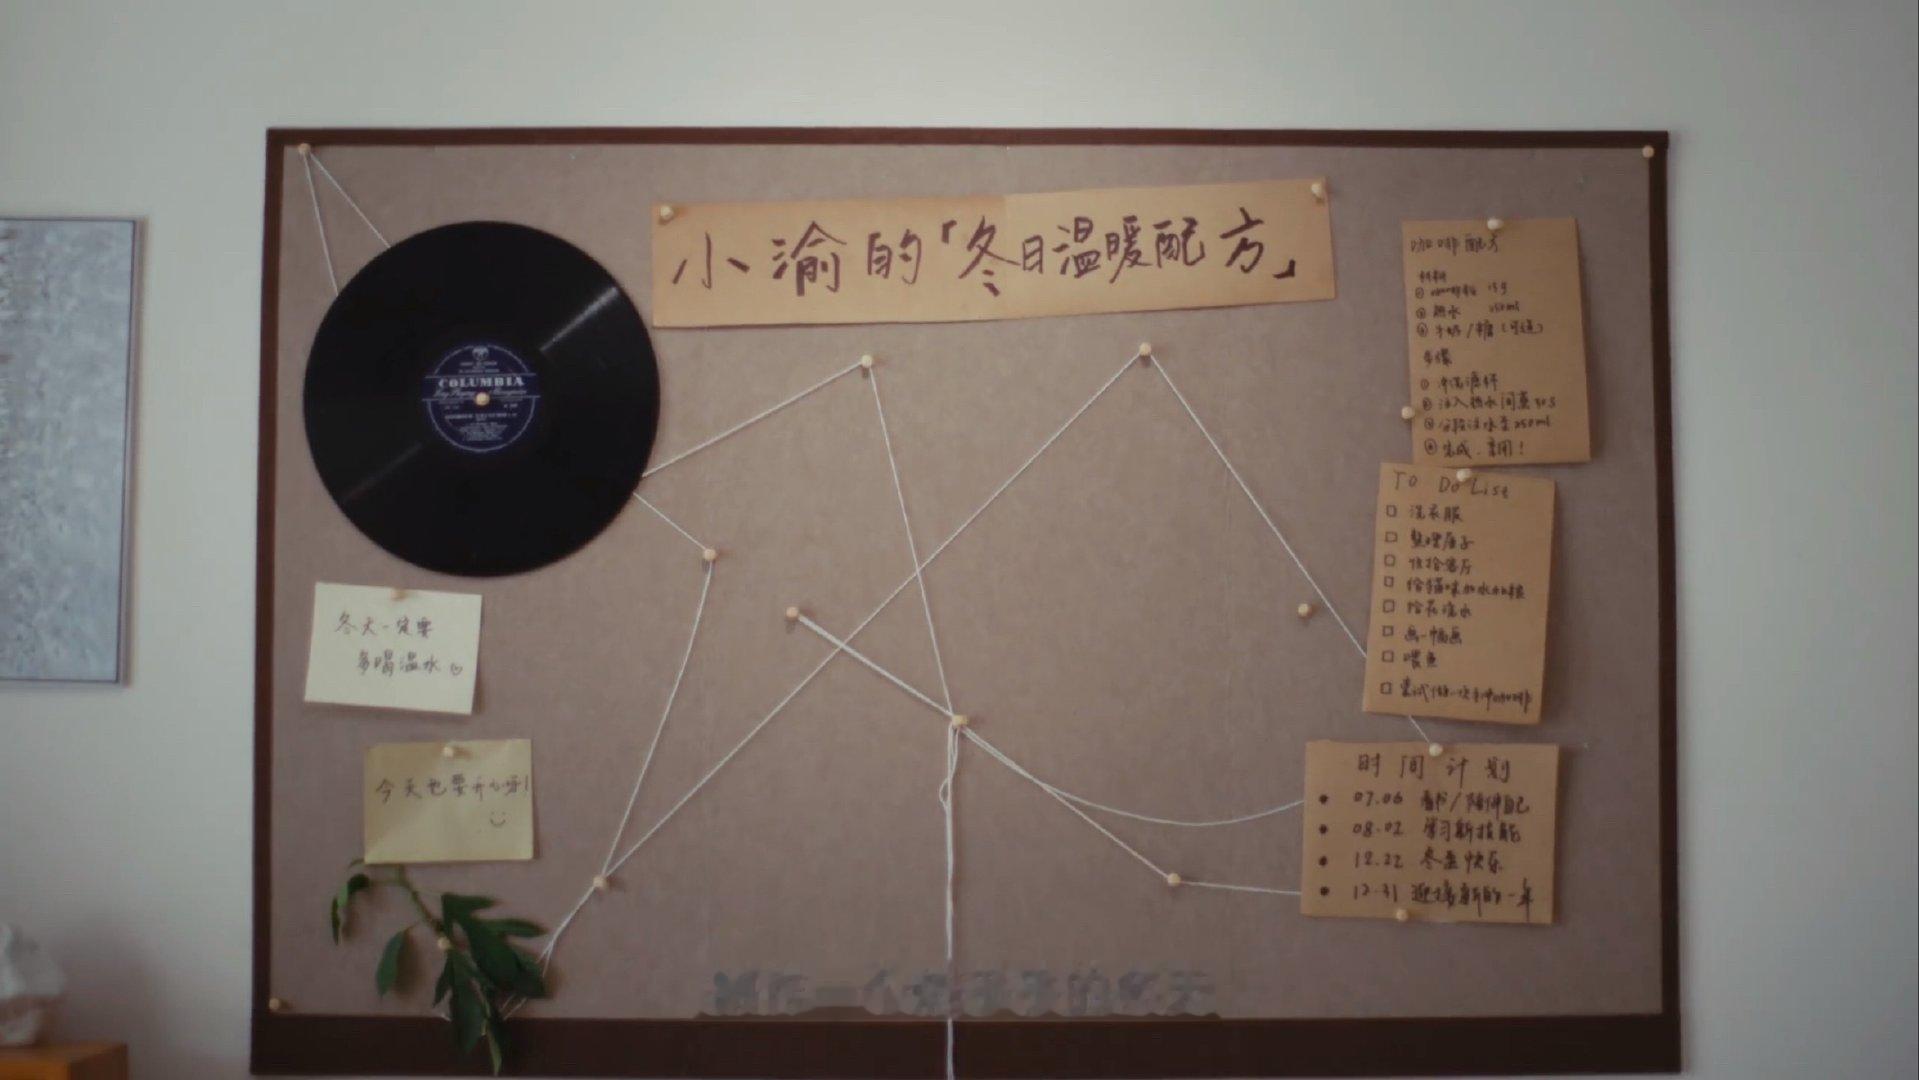 小渝的「冬日温暖配方」
COLUMBIA
冬天一定要
多喝温水
今天也要开心呀!
咖啡配方
材料
① 咖啡粉 15g
② 热水 250ml
③ 牛奶/糖(可选)
步骤
① 冲洗滤杯
② 注入热水闷蒸30s
③ 分段注水至250ml
④ 完成.享用!
TO Do List
洗衣服
整理屋子
收拾客厅
给猫咪加水加粮
给花浇水
画一幅画
喂鱼
尝试做一次手冲咖啡
时间计划
07.06 看书/陪伴自己
08.02 学习新技能
12.22 冬至快乐
12.31 迎接新的一年